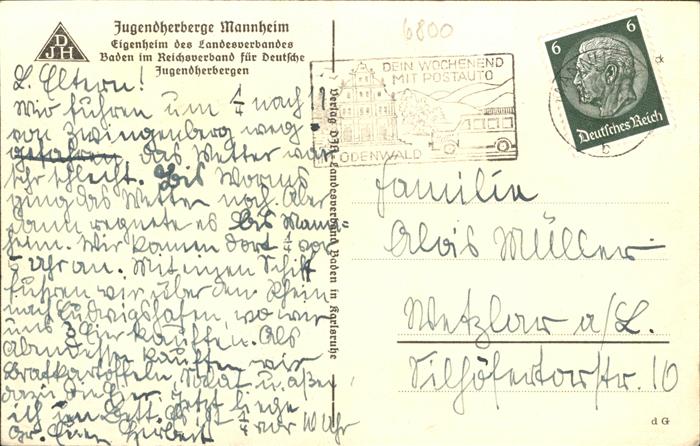 Jugendherberge Mannheim
Eigenheim des Landesverbandes
Baden im Reichsverband für Deutsche
Jugendherbergen
D
J H
6800
DEIN WOCHENEND
MIT POSTAUTO
ODENWALD
6 6
Deutsches Reich
b
Verlag DJH Landesverband Baden in Karlsruhe
L. Eltern!
Wir fuhren um 1/4 nach 11
von Zwingenberg weg
das Wetter war
sehr schlecht. Bis Worms
ging das Wetter noch. Aber
dann regnete es bis Mann-
heim. Wir kamen dort 1/4 vor
5 Uhr an. Mit einem Schiff
fuhren wir über den Rhein
nach Ludwigshafen, wo wir
uns 3 Eier kauften. Als
Abendessen kauften wir
Bratkartoffeln, Salat u. aßen
dazu die Eier. Jetzt liege
ich im Bett. Es ist 1/4 vor 10 Uhr
Gr. Euer Herbert
Familie
Alois Müller
Wetzlar a/L.
Silhöfertorstr. 10
d G